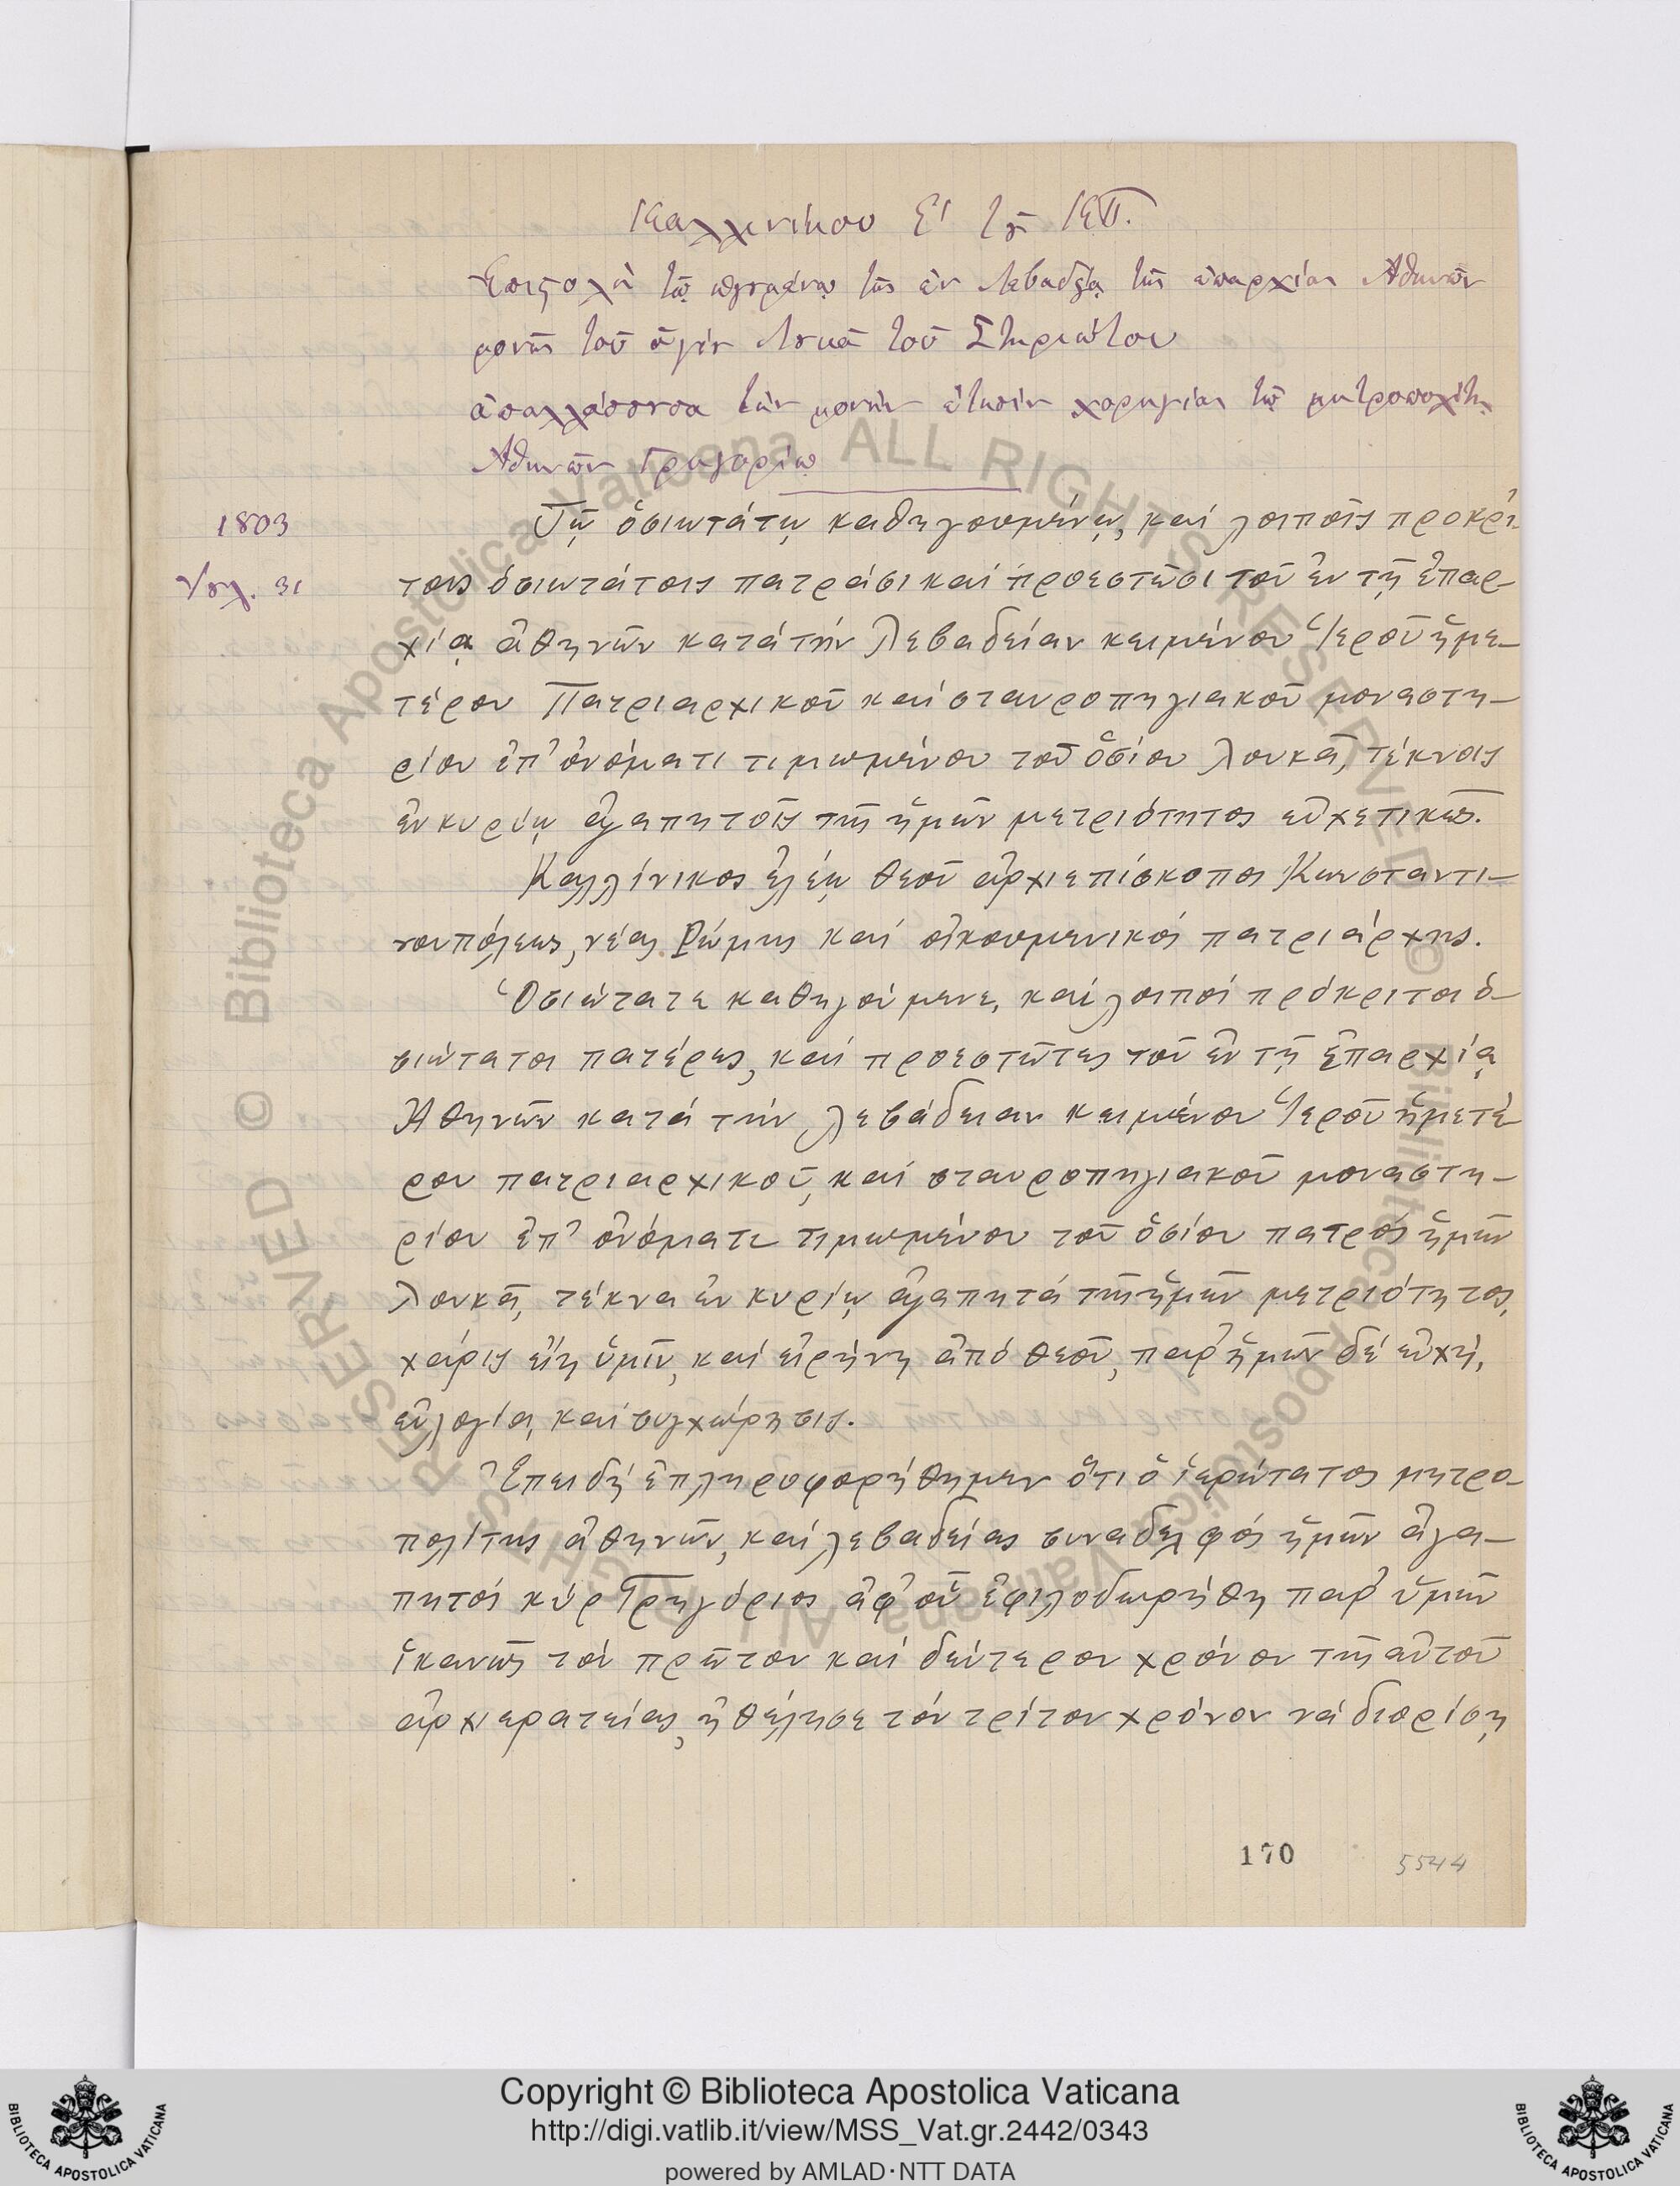 Καλλινίκου Εʹ τοῦ ΚΠ.
Ἐπιστολὴ τῷ ἡγουμένῳ τῆς ἐν Λεβαδείᾳ τῆς ἐπαρχίας Ἀθηνῶν
μονῆς τοῦ ἁγίου Λουκᾶ τοῦ Στηριώτου
ἀπαλλάσσουσα τὴν μονὴν ἐτησίου χορηγίας τῷ μητροπολίτῃ
Ἀθηνῶν Γρηγορίῳ
1803
Τῷ ὁσιωτάτῳ καθηγουμένῳ, καί λοιποῖς προκρί
Ἰουλ. 31
τοις ὁσιωτάτοις πατράσι καί προεστῶσι τοῦ ἐν τῇ ἐπαρ-
χίᾳ ἀθηνῶν κατά τήν λεβαδείαν κειμένου Ἱεροῦ ἡμε-
τέρου Πατριαρχικοῦ καί σταυροπηγιακοῦ μοναστη-
ρίου ἐπ' ὀνόματι τιμωμένου τοῦ ὁσίου λουκᾶ, τέκνοις
ἐν κυρίῳ ἀγαπητοῖς τῆς ἡμῶν μετριότητος εὐχετικῶς.
Καλλίνικος ἐλέῳ θεοῦ ἀρχιεπίσκοπος Κωνσταντι-
νουπόλεως, νέας Ρώμης καί οἰκουμενικός πατριάρχης.
Ὁσιώτατε καθηγούμενε, καί λοιποί πρόκριτοι ὁ-
σιώτατοι πατέρες, καί προεστῶτες τοῦ ἐν τῇ ἐπαρχίᾳ
Ἀθηνῶν κατά τήν λεβάδειαν κειμένου Ἱεροῦ ἡμετέ
ρου πατριαρχικοῦ, καί σταυροπηγιακοῦ μοναστη-
ρίου ἐπ' ὀνόματι τιμωμένου τοῦ ὁσίου πατρός ἡμῶν
λουκᾶ, τέκνα ἐν κυρίῳ ἀγαπητά τῆς ἡμῶν μετριότητος,
χάρις εἴη ὑμῖν, καί εἰρήνη ἀπό θεοῦ, παρ' ἡμῶν δέ εὐχή,
εὐλογία, καί συγχώρησις.
Ἐπειδή ἐπληροφορήθημεν ὅτι ὁ ἱερώτατος μητρο-
πολίτης ἀθηνῶν, καί λεβαδείας συναδελφός ἡμῶν ἀγα-
πητός κύρ Γρηγόριος ἀφ' οὗ ἐφιλοδωρήθη παρ' ὑμῶν
ἱκανῶς τόν πρῶτον καί δεύτερον χρόνον τῆς αὐτοῦ
ἀρχιερατείας, ἠθέλησε τόν τρίτον χρόνον νά διορίσῃ
170
5544
Copyright © Biblioteca Apostolica Vaticana
http://digi.vatlib.it/view/MSS_Vat.gr.2442/0343
powered by AMLAD·NTT DATA